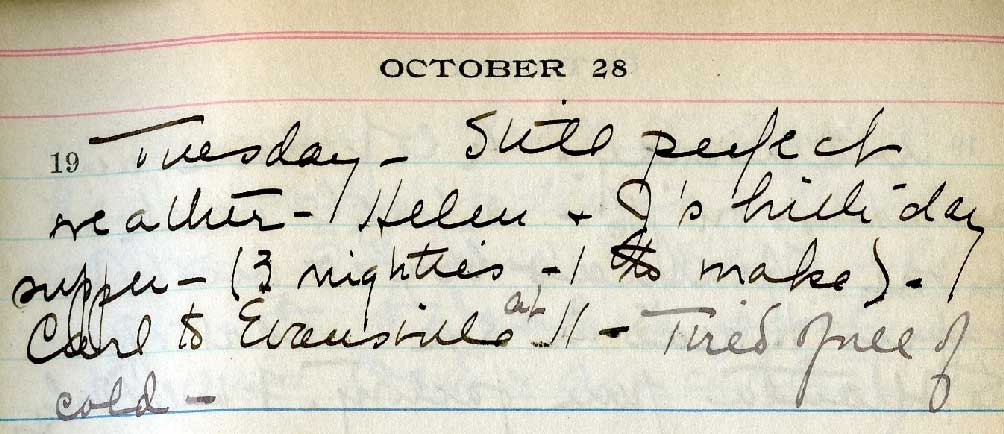 OCTOBER 28
19 Tuesday - Still perfect
weather - Helen + J's birthday
supper - (3 nighties - 1 to make) -
Carl to Evansville at 11 - Tired & full of
cold -